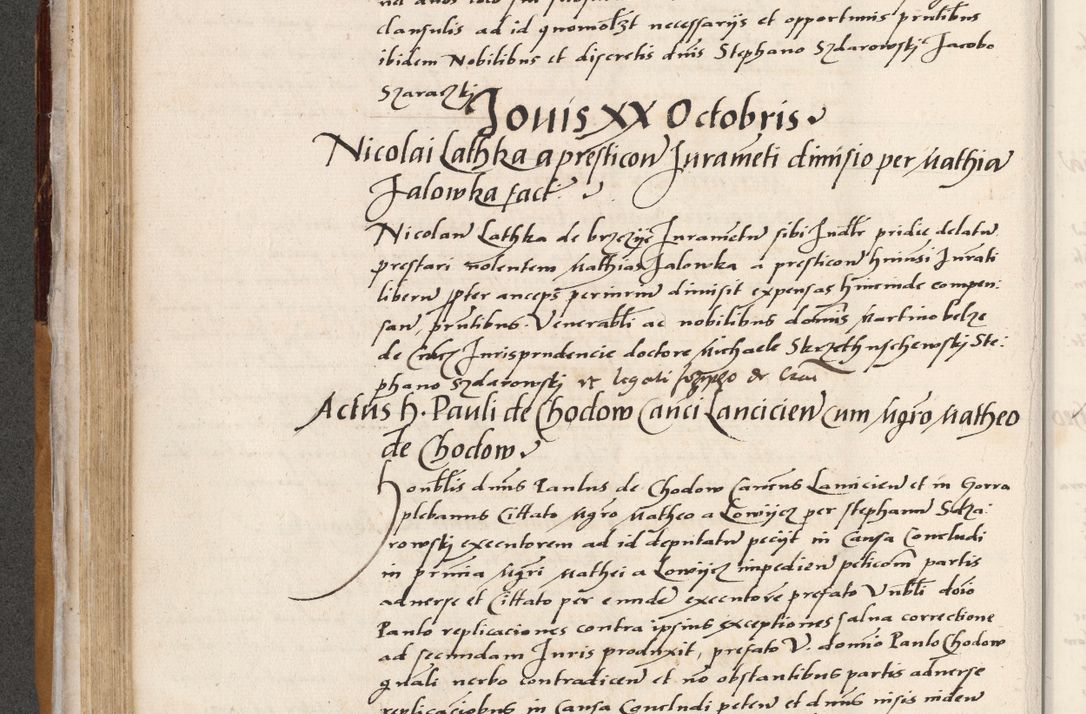 clausulis ad id quomolzt necessarijs et opportunis pntibus
ibidem Nobilibus et discretis dnis Stephano Szdarowskj Jacobo
Szaraczkj
Jouis XX Octobris
Nicolai Lathka a presticon Juramēti dimisio per Mathia
Jalowka fact
Nicolau Lathka de brzezije Jurametu sibi Judlr pridie delatu
prestari nolentem Mathias Jalowka a presticon hmusi Jurati
liberu pter anceps periuriu dimisit expensas hincinde compen:
san, pntibus. Venerabli ac nobilibus domis Martino belze
de Jurisprudencie doctore Michaele Skrzethuschewskj Ste:
phano Szdarowskj et de
Actus h. Pauli de Chodow Canci Lancicien Cum Mgro Matheo
de Chodow
honblis dnus Paulus de Chodow Canncus Lancicien et in Gorra
plebanus Cittato Mgro Matheo a Lowijcz per stephanu Sdza:
rowskj executorem ad id deputatu pecijt in Causa Concludi
in pmia Mgri Mathei a Lowijcz impedien peticom partis
aduerse et Cittato per eunde executore prefato Vnbli dnio
Paulo replicaciones contra ipsius exceptiones salua correctione
ad secundam Juris produxit, prefato V. domio Paulo Chodow
gnali verbo contradicen et no obstantibus partis aduerse
replicaciobus in Causa Concludi peten et dnus visis inden